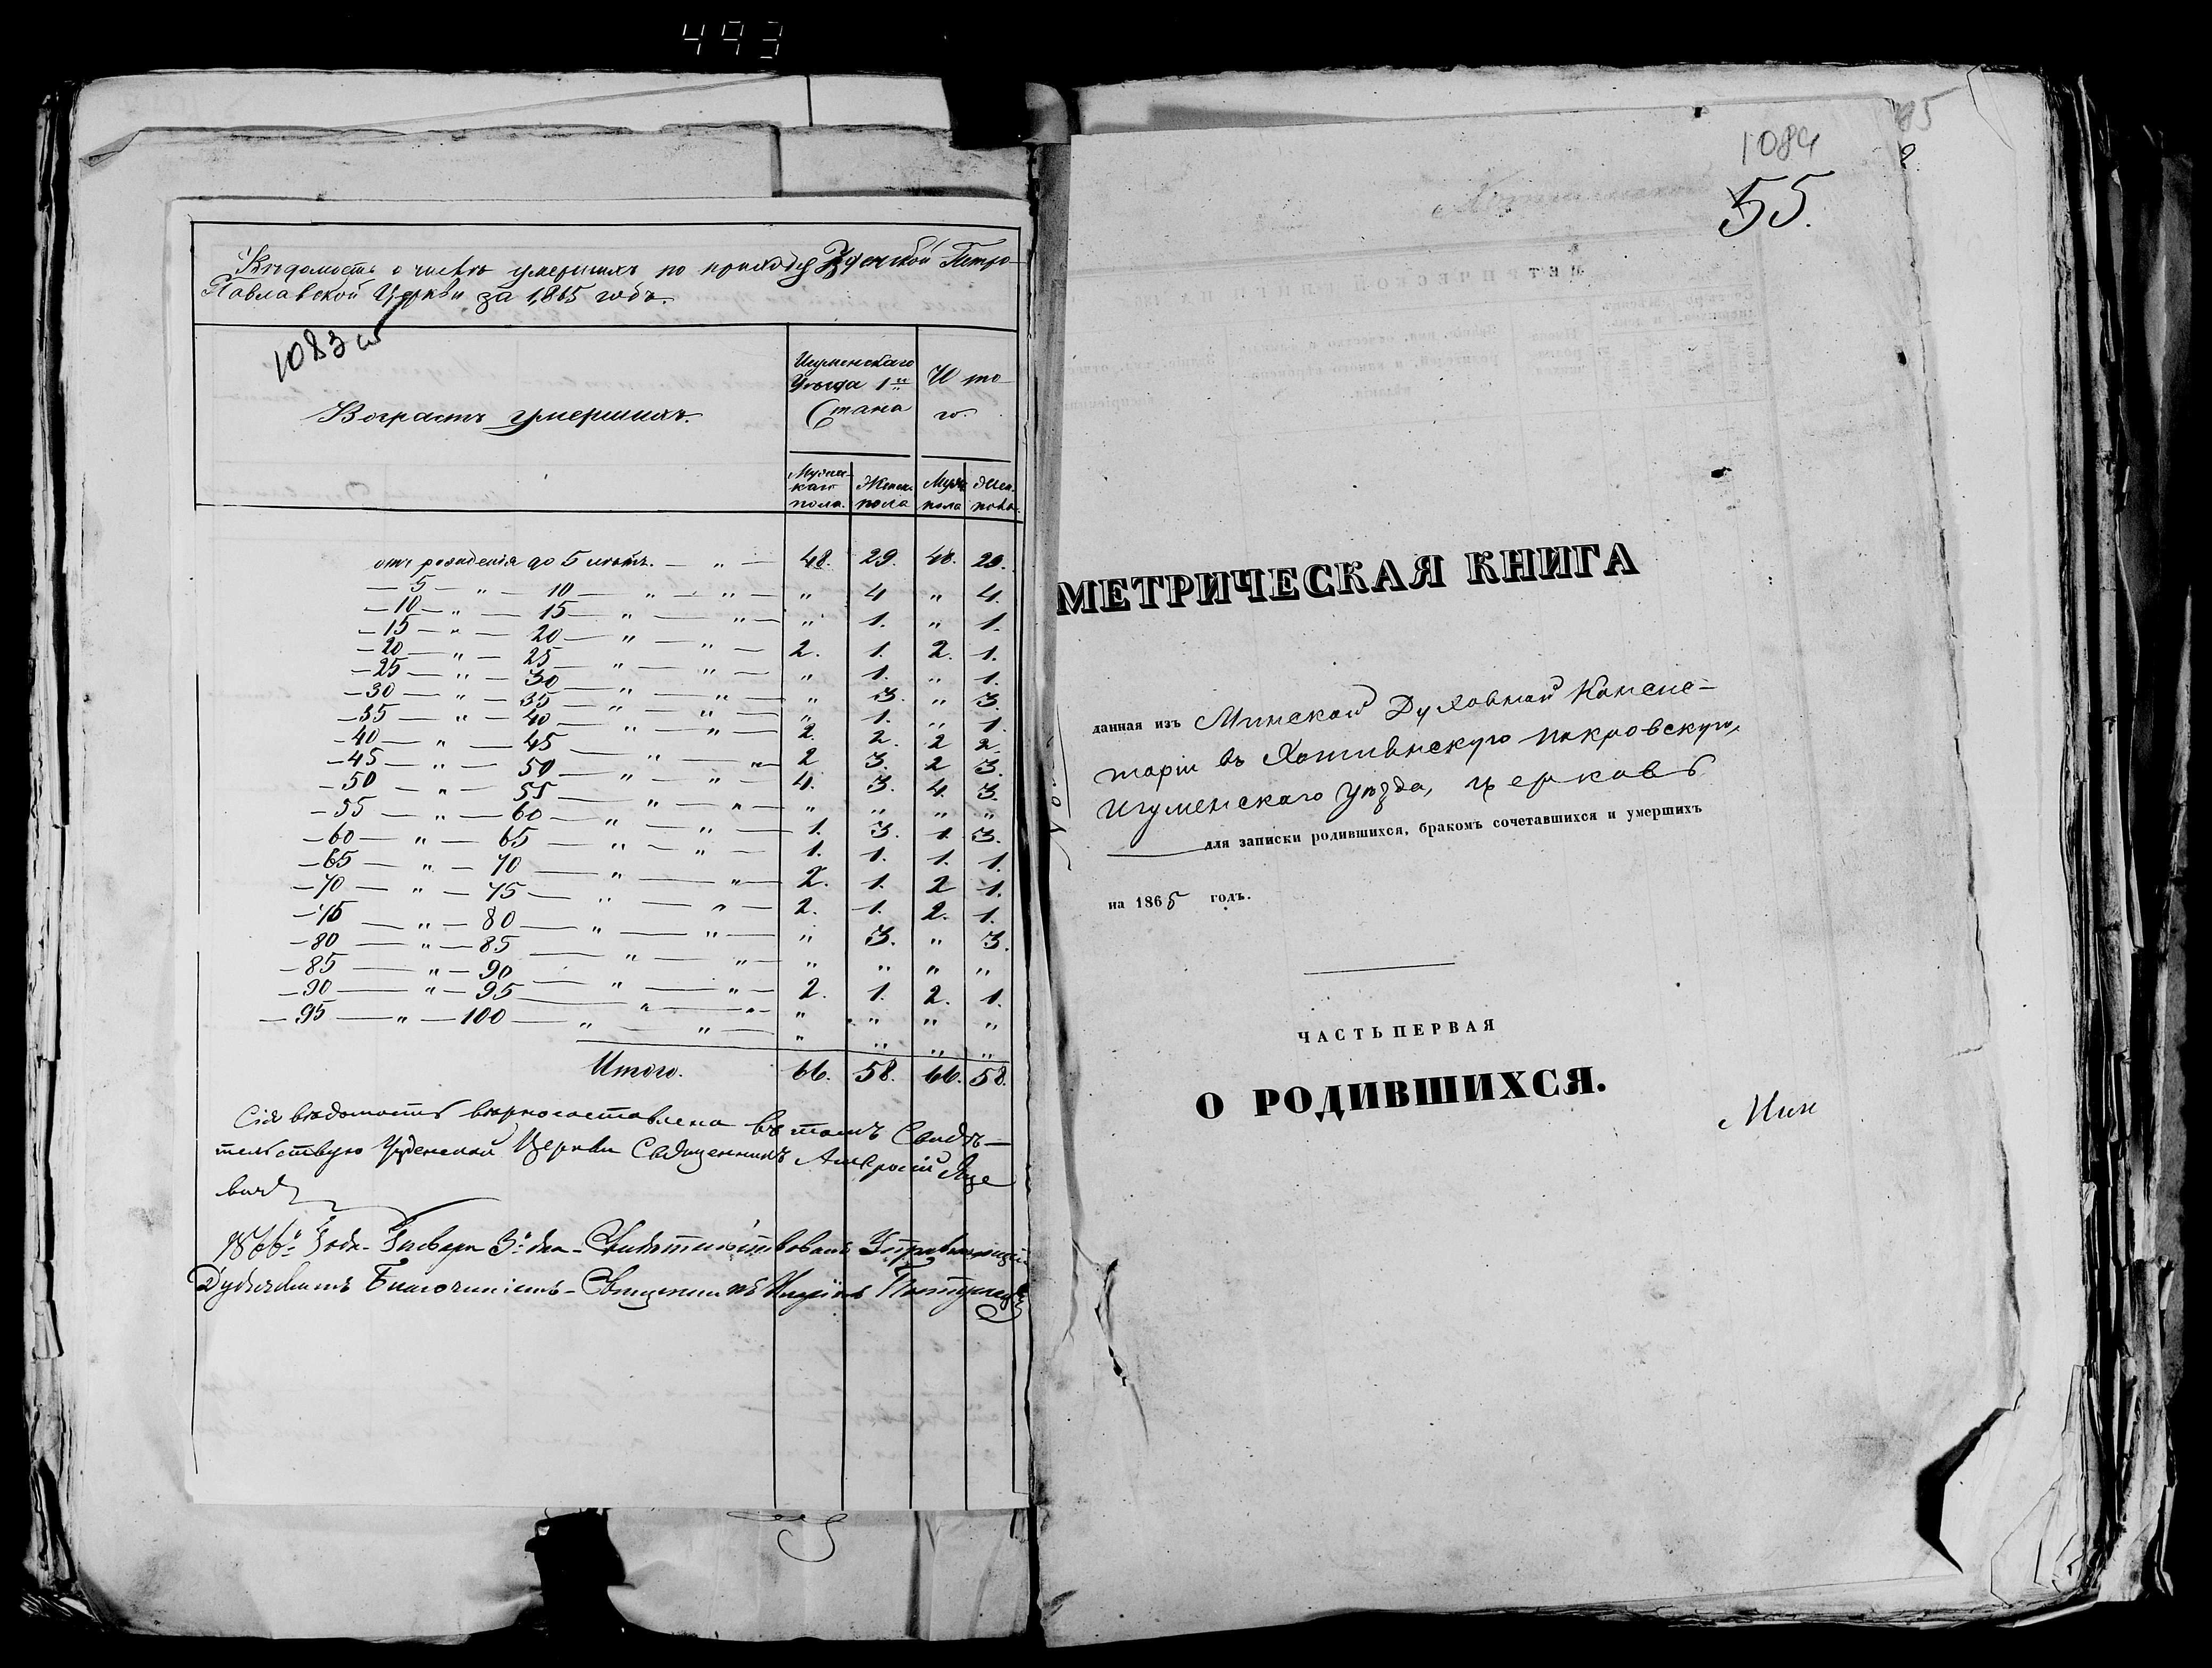 493
Вѣдомость о числѣ умершихъ по приходу Узденской Петро-
Павлавской Церкви за 1865 годъ.
1083 об
Возрастъ умершихъ.
Игуменскаго
Уѣзда 1го
Стана
Ито-
го.
Мужс-
каго
пола.
Женск.
пола
Муж.
пола
Жен.
пола.
отъ рожденія до 5 лѣтъ. — " — 48. 29. 48. 29.
— 5 — " — 10 — " — " — " 4 " 4.
— 10 — " — 15 — " — " — " 1. " 1.
— 15 — " — 20 — " — " — 2. 1. 2. 1.
— 20 — " — 25 — " — " — " 1. " 1.
— 25 — " — 30 — " — " — " 3. " 3.
— 30 — " — 35 — " — " — " 1. " 1.
— 35 — " — 40 — " — " — 2. 2. 2 2.
— 40 — " — 45 — " — " — 2 3. 2 3.
— 45 — " — 50 — " — " — 4. 3. 4. 3.
— 50 — " — 55 — " — " — " " " "
— 55 — " — 60 — " — " — 1. 3. 1. 3.
— 60 — " — 65 — " — " — 1. 1. 1. 1.
— 65 — " — 70 — " — " — 2. 1. 2 1.
— 70 — " — 75 — " — " — 2. 1. 2. 1.
— 75 — " — 80 — " — " — " 3. " 3.
— 80 — " — 85 — " — " — " " " "
— 85 — " — 90 — " — " — 2. 1. 2. 1.
— 90 — " — 95 — " — " — " " " "
— 95 — " — 100 — " — " — " " " "
Итого. 66. 58. 66. 58.
Сія вѣдомость вѣрно составлена въ томъ Свидѣ-
тельствую Узденской Церкви Священникъ Амвросій
1866го Года Января 3го дня Свидѣтельствовалъ
Благочиніемъ Священникъ
1084
55.
МЕТРИЧЕСКАЯ КНИГА
данная изъ Минской Духовной Консис-
торіи въ Хотлянскую покровскую,
Игуменскаго уѣзда, церковь
для записки родившихся, бракомъ сочетавшихся и умершихъ
на 1865 годъ.
ЧАСТЬ ПЕРВАЯ
О РОДИВШИХСЯ.
Мин